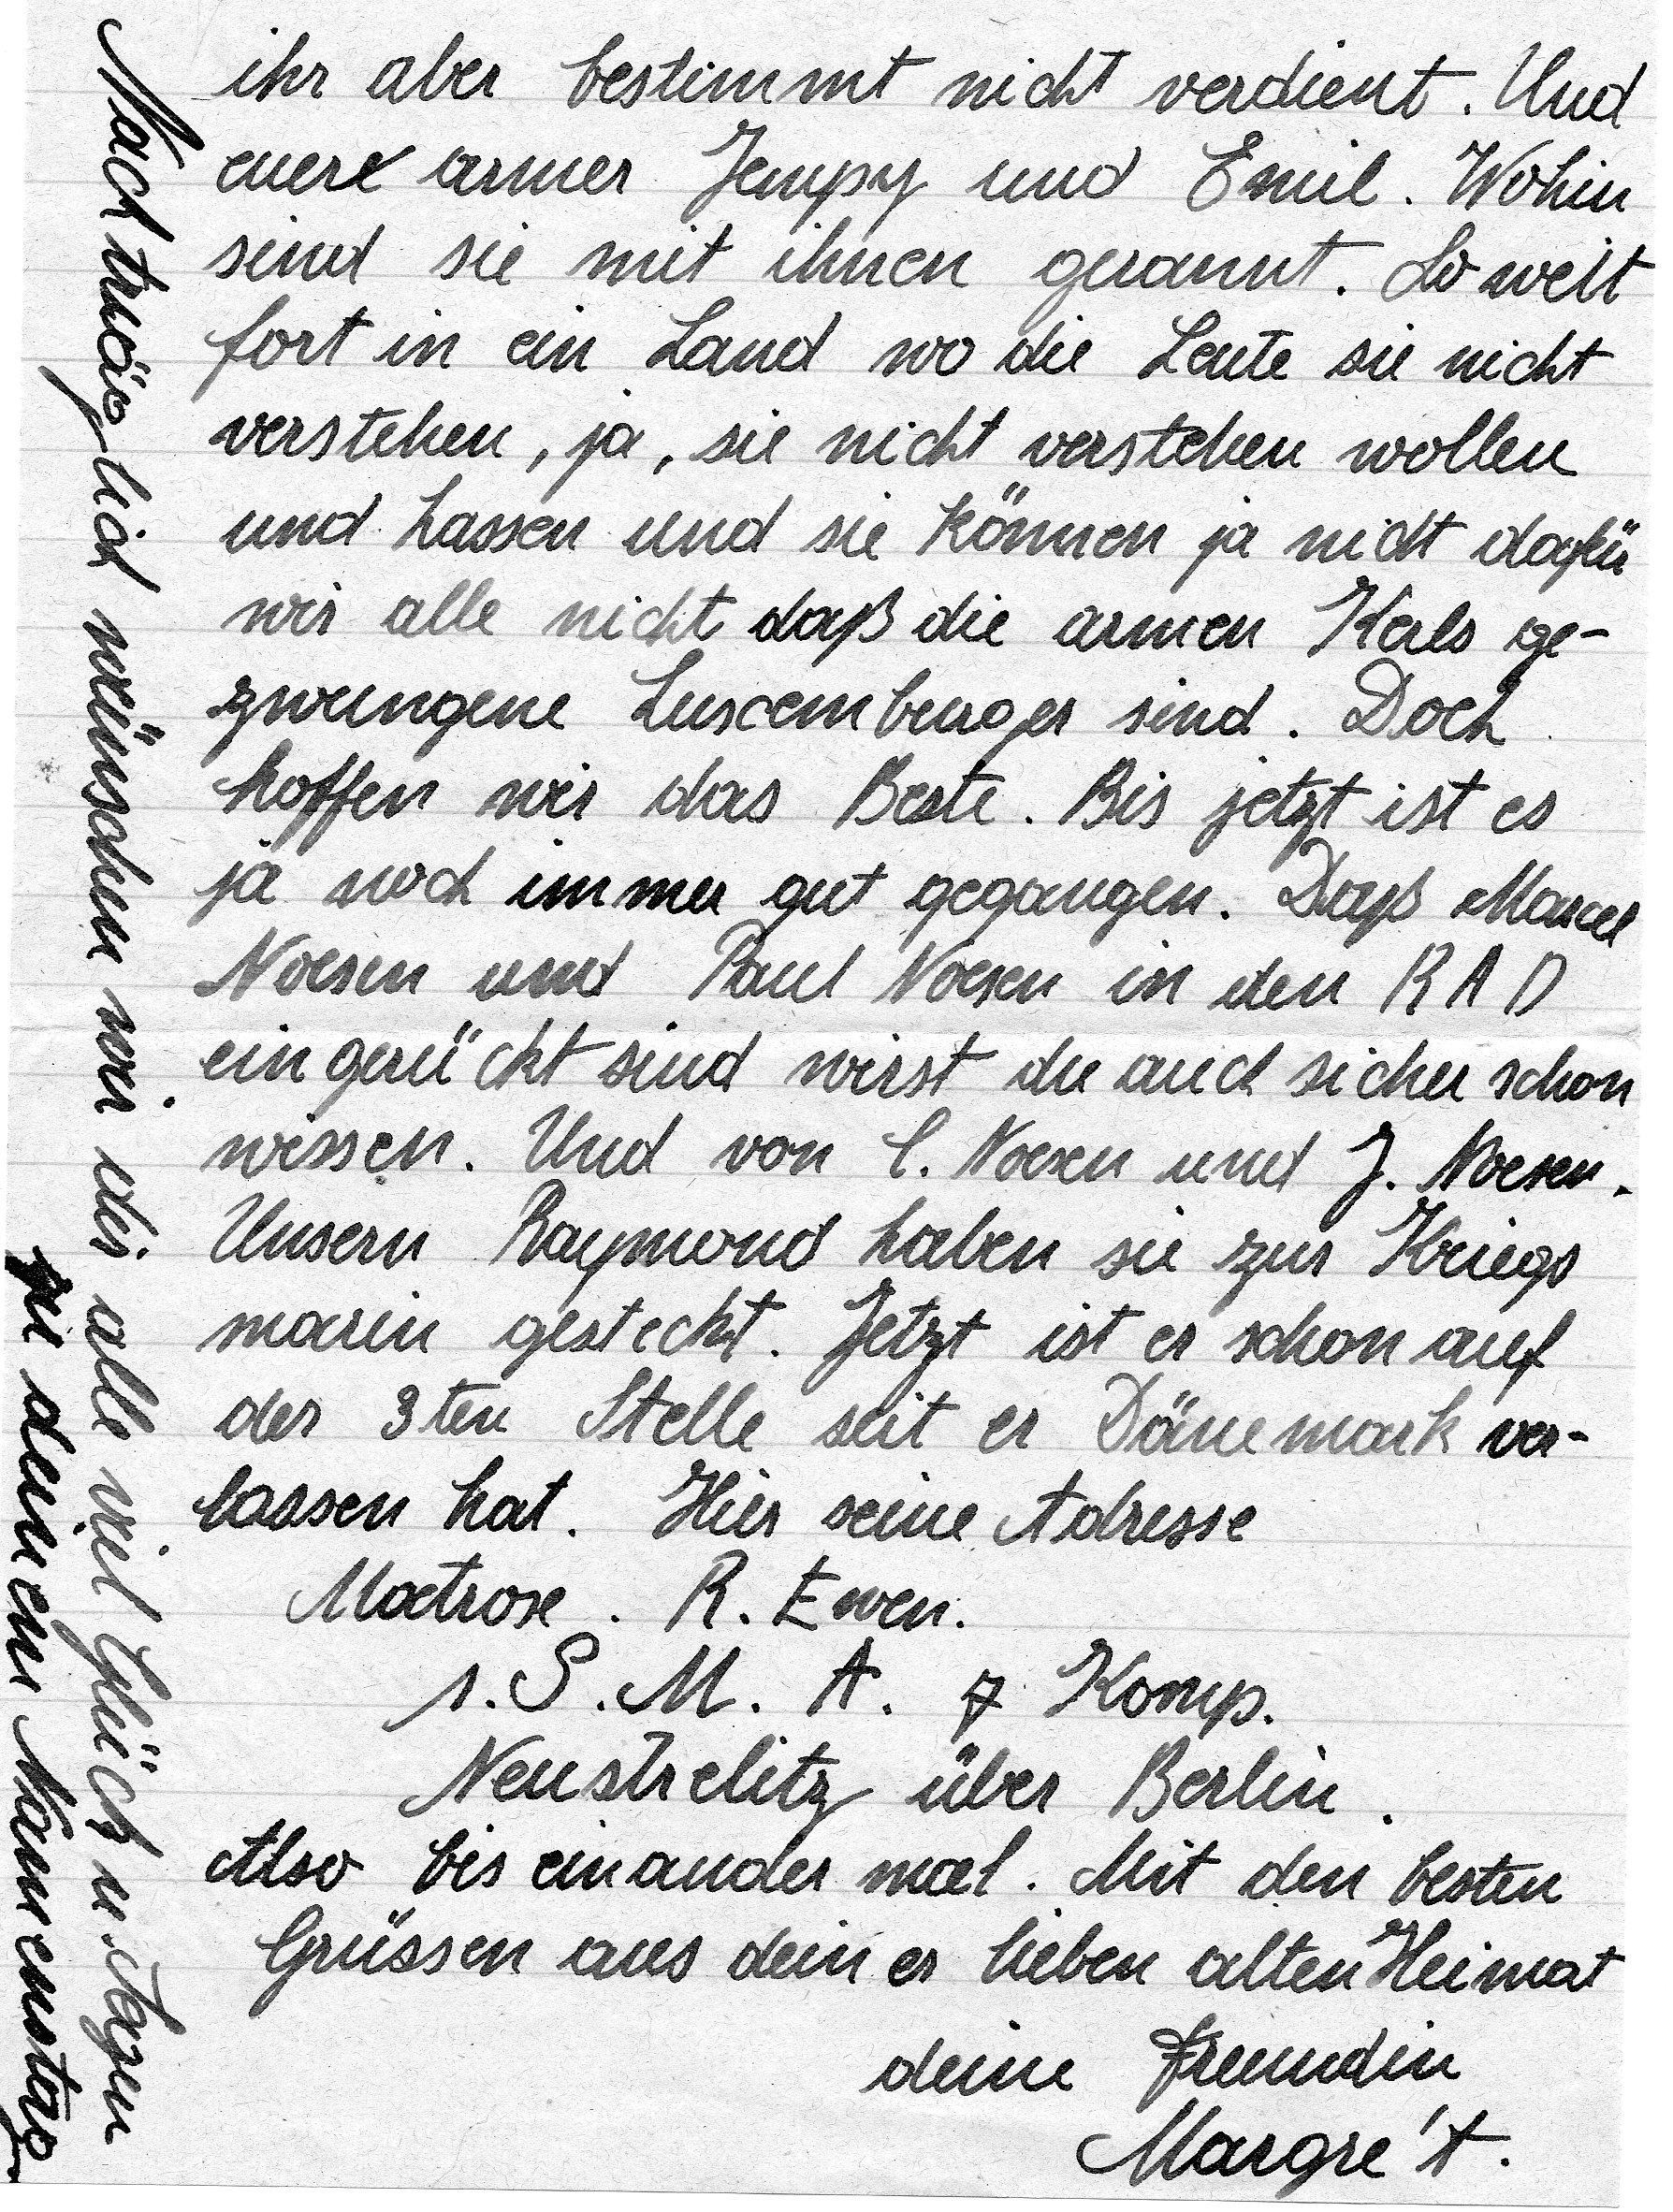 ihr aber bestimmt nicht verdient. Und
euere armer Jempy und Emil. Wohin
sind sie mit ihnen gerannt. So weit
fort in ein Land wo die Leute sie nicht
verstehen, ja, sie nicht verstehen wollen
und hassen und sie können ja nicht dafür
wir alle nicht daß die armen Kerls ge-
zwungene Luxemburger sind. Doch
hoffen wir das Beste. Bis jetzt ist es
ja noch immer gut gegangen. Daß Marcel
Noesen und Paul Noesen in den RAD
eingerückt sind wirst du auch sicher schon
wissen. Und von C. Noesen und J. Noesen.
Unsern Raymond haben sie zur Kriegs
marin gesteckt. Jetzt ist er schon auf
der 3ten Stelle seit er Dänemark ver-
lassen hat. Hier seine Adresse
Matrose. R. Ewen.
1. S. M. A. 7 Komp.
Neustrelitz über Berlin.
Also bis einander mal. Mit den besten
Grüssen aus deiner lieben alten Heimat
deine freundin
Margre't.
Nachträglich wünschen wir dir alle viel Glück u. Segen
zu deinem Namenstag.